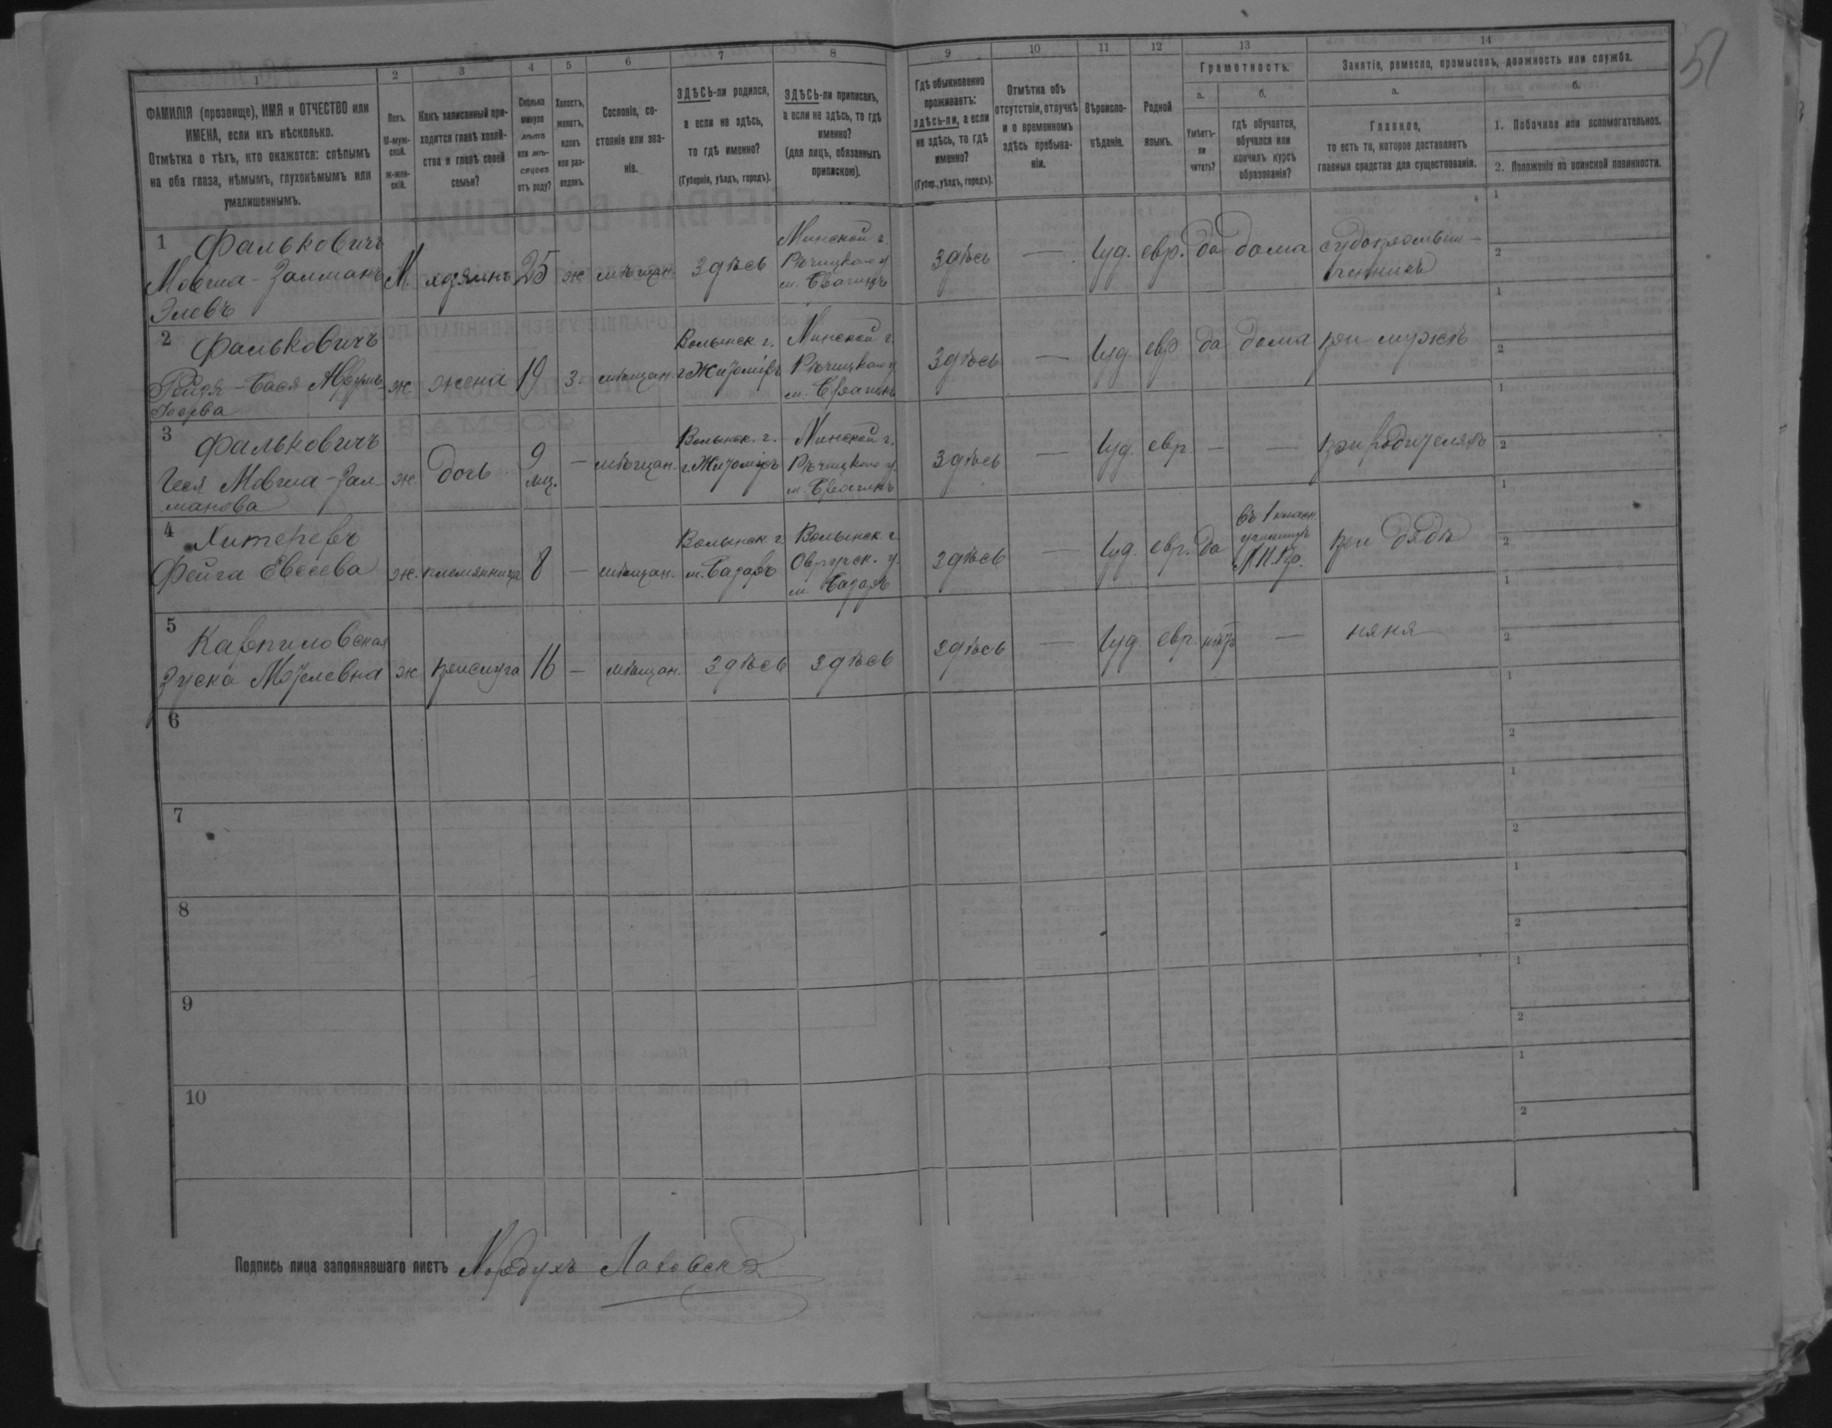 51
1
ФАМИЛІЯ (прозвище), ИМЯ и ОТЧЕСТВО или
ИМЕНА, если ихъ нѣсколько.
Отмѣтка о тѣхъ, кто окажется: слѣпымъ
на оба глаза, нѣмымъ, глухонѣмымъ или
умалишеннымъ.
2
Полъ.
М-муж-
ской.
ж-жен-
скій.
3
Какъ записанный при-
ходится главѣ хозяй-
ства и главѣ своей
семьи?
4
Сколько
минуло
лѣтъ
или мѣ-
сяцевъ
отъ роду?
5
Холостъ,
женатъ,
вдовъ
или раз-
веденъ.
6
Сословіе, со-
стояніе или зва-
ніе.
7
ЗДѢСЬ-ли родился,
а если не здѣсь,
то гдѣ именно?
(Губернія, уѣздъ, городъ).
8
ЗДѢСЬ-ли приписанъ,
а если не здѣсь, то гдѣ
именно?
(для лицъ, обязанныхъ
припискою).
9
Гдѣ обыкновенно
проживаетъ:
здѣсь-ли, а если
не здѣсь, то гдѣ
именно?
(Губер., уѣздъ, городъ).
10
Отмѣтка объ
отсутствіи, отлучкѣ
и о временномъ
здѣсь пребыва-
ніи.
11
Вѣроиспо-
вѣданіе.
12
Родной
языкъ.
13
Грамотность.
а.
Умѣетъ-
ли
читать?
б.
гдѣ обучается,
обучался или
кончилъ курсъ
образованія?
14
Занятіе, ремесло, промыселъ, должность или служба.
а.
Главное,
то есть то, которое доставляетъ
главныя средства для существованія.
б.
1. Побочное или вспомогательное.
2. Положеніе по воинской повинности.
1
Фальковичъ
Мовша-Залманъ
Элевъ
М.
хозяинъ
25
ж
мѣщан.
здѣсь
Минской г.
Рѣчицкаго у
м. Брагинъ
здѣсь
—
Іуд.
евр.
да
дома
судопромыш-
ленникъ
1
2
2
Фальковичъ
ж
жена
19
з.
мѣщан.
Волынск г.
г Житоміръ
Минской г.
Рѣчицкаго у
м. Брагинъ
здѣсь
—
Іуд.
евр
да
дома
при мужѣ
1
2
3
Фальковичъ
Геся Мовша-Зал-
манова
ж
дочь
9
мц.
—
мѣщан.
Волынск. г.
г. Житоміръ
Минской г.
Рѣчицкаго у.
м. Брагинъ
здѣсь
—
Іуд.
евр.
—
—
при родителяхъ
1
2
4
Хитеревъ
Фейга Евсеева
ж.
племянница
8
—
мѣщан.
Волынск. г
м. Базаръ
Волынск г
Овручск. у.
м. Базаръ
здѣсь
—
Іуд.
евр.
да
въ 1 класн.
училищѣ
при дядѣ
1
2
5
Карпиловская
Зуска Мотелевна
ж
прислуга
16
—
мѣщан.
здѣсь
здѣсь
здѣсь
—
Іуд.
евр.
нѣтъ
—
няня
1
2
6
1
2
7
1
2
8
1
2
9
1
2
10
1
2
Подпись лица заполнявшаго листъ Мордухъ